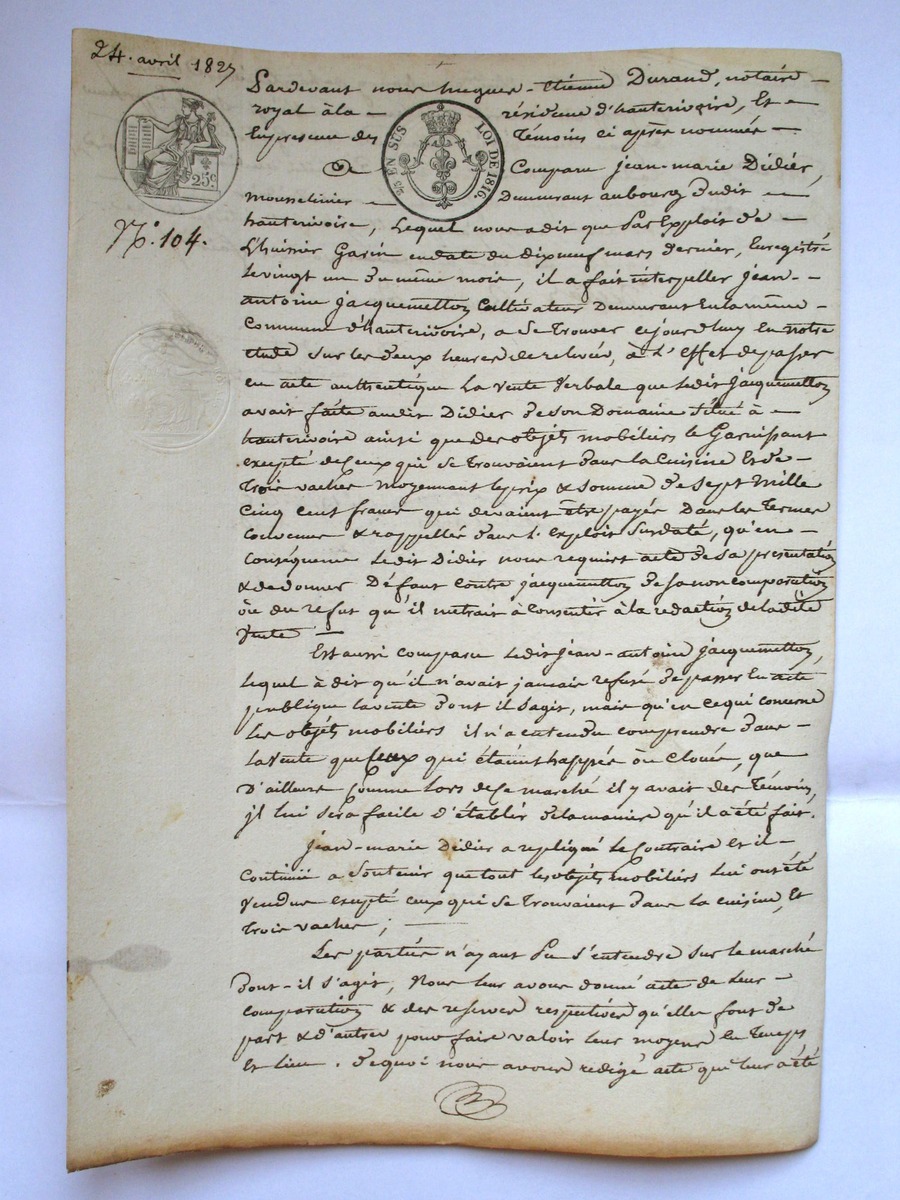 24. avril 1827
Pardevant nous hugues-Etienne Durand, notaire
royal à la résidence d'hauterivoire, Et
En presence des Témoins ci après nommés
EN SUS LOI DE 1816.
25c
Compare jean-marie Didier,
mousselinier Demeurant au bourg dudit
N°. 104.
hauterivoire, Lequel nous a dit que Par Exploit de
L'huissier Garin en date du dix neuf mars dernier, Enregistré
Le vingt un du même mois, il a fait interpeller jean-
antoine jacquemetton Cultivateur Demeurant En la même
Commune d'hauterivoire, a se trouver cejourd'huy En notre
etude sur les deux heures de relevée, à L'Effet de passer
en acte authentique La vente Verbale que ledit jacquemetton
avait faite audit Didier de son Domaine situé à
hauterivoire ainsi que des objets mobiliers le Garnissant
excepté de Ceux qui se trouvaient dans la Cuisine Et de
Trois vaches moyennant le prix & somme de Sept Mille
Cinq Cent francs qui devaient être payés Dans les Termes
Convenus & rappellés dans L'exploit Susdaté, qu'en
Conséquence Ledit Didier nous requiert acte de sa presentation
& de donner Défaut Contre jacquemetton de sa non comparution
òu du refus qu'il mettrait à Consentir à la redaction de ladite
Vente
Est aussi comparu Ledit jean-antoine jacquemetton,
Lequel à dit qu'il n'avait jamais refusé de passer En acte
publique la vente dont il s'agit, mais qu'en ce qui concerne
Les objéts mobiliers il n'a entendu comprendre dans
La Vente que Ceux qui étaient happés òu Cloués, que
D'ailleurs Comme Lors de Ce marché il y avait des Témoins,
jl lui sera facile d'établir de la maniere qu'il a été fait.
jean-marie Didier a repliqué Le Contraire et il
Continué a Soutenir que tout les objéts mobiliers Lui ont été
Vendus excepté ceux qui se trouvaient dans la cuisine, Et
Trois vaches;
Les parties n'ayant Pu s'entendre sur le marché
dont-il s'agit, Nous leur avons donné acte de Leur
comparution & des reserves respectives qu'elles font de
part & d'autres pour faire valoir leur moyens En Temps
Et Lieu. de quoi nous avons redigé acte qui leur a été